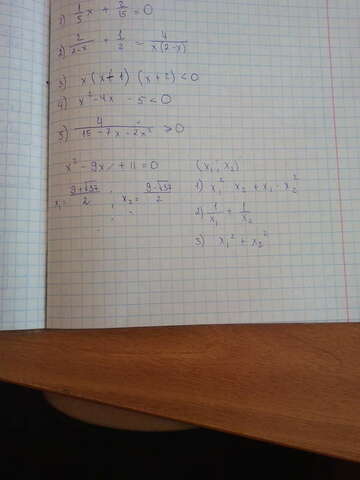 1) 1/5 x + 2/15 = 0
2) 2/(2-x) + 1/2 = 4/(x(2-x))
3) x(x+1)(x+2)<0
4) x² - 4x - 5 < 0
5) 4/(15 - 7x - 2x²) > 0
x² - 9x + 11 = 0 (x₁; x₂)
x₁ = (9+√37)/2 ; x₂ = (9-√37)/2
1) x₁² x₂ + x₁ · x₂²
2) 1/x₁ + 1/x₂
3) x₁² + x₂²